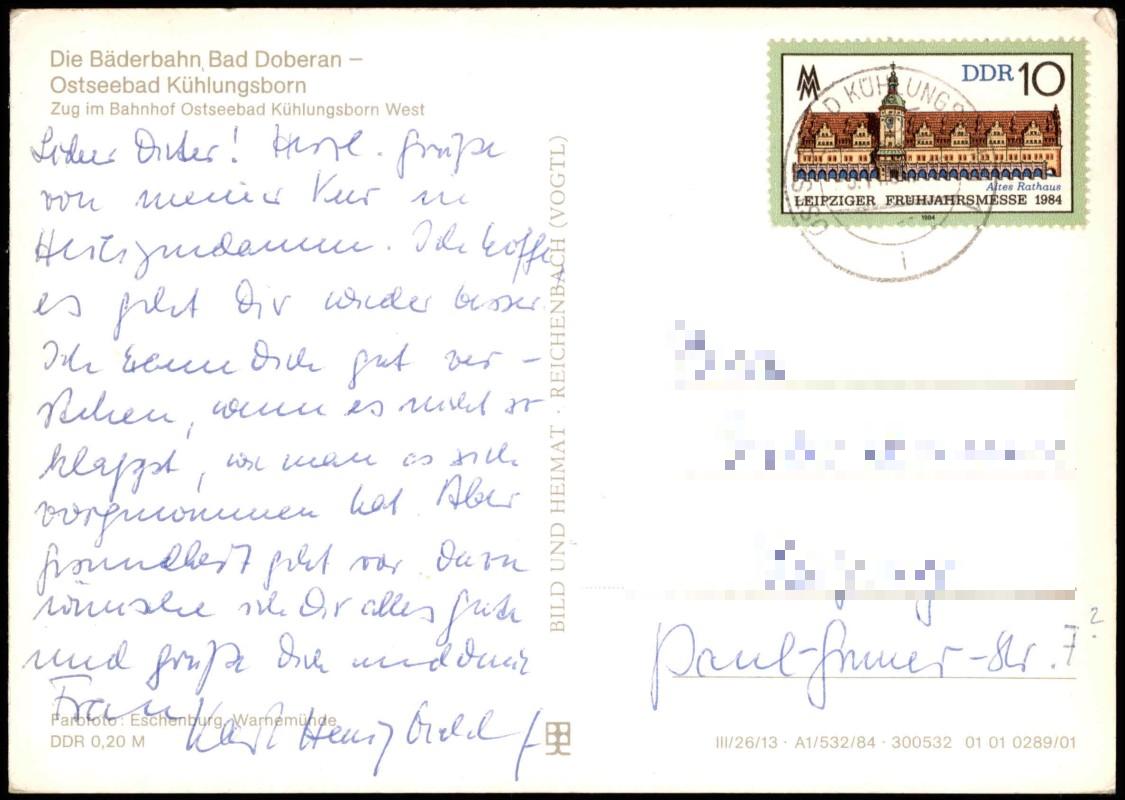 Die Bäderbahn Bad Doberan –
Ostseebad Kühlungsborn
Zug im Bahnhof Ostseebad Kühlungsborn West
Lieber Dieter! Herzl. Grüße
von meiner Kur in
Heiligendamm. Ich hoffe,
es geht Dir wieder besser.
Ich kann Dich gut ver-
stehen, wenn es nicht so
klappt, wie man es sich
vorgenommen hat. Aber
Gesundheit geht vor. Darin
wünsche ich Dir alles Gute
und grüße Dich und Deine
Frau Karl Heinz
Farbfoto: Eschenburg, Warnemünde
DDR 0,20 M
BILD UND HEIMAT · REICHENBACH (VOGTL)
DDR 10
Altes Rathaus
LEIPZIGER FRÜHJAHRSMESSE 1984
1984
KÜHLUNGS
i
Paul-Gruner-Str. 7?
III/26/13 · A1/532/84 · 300532 01 01 0289/01